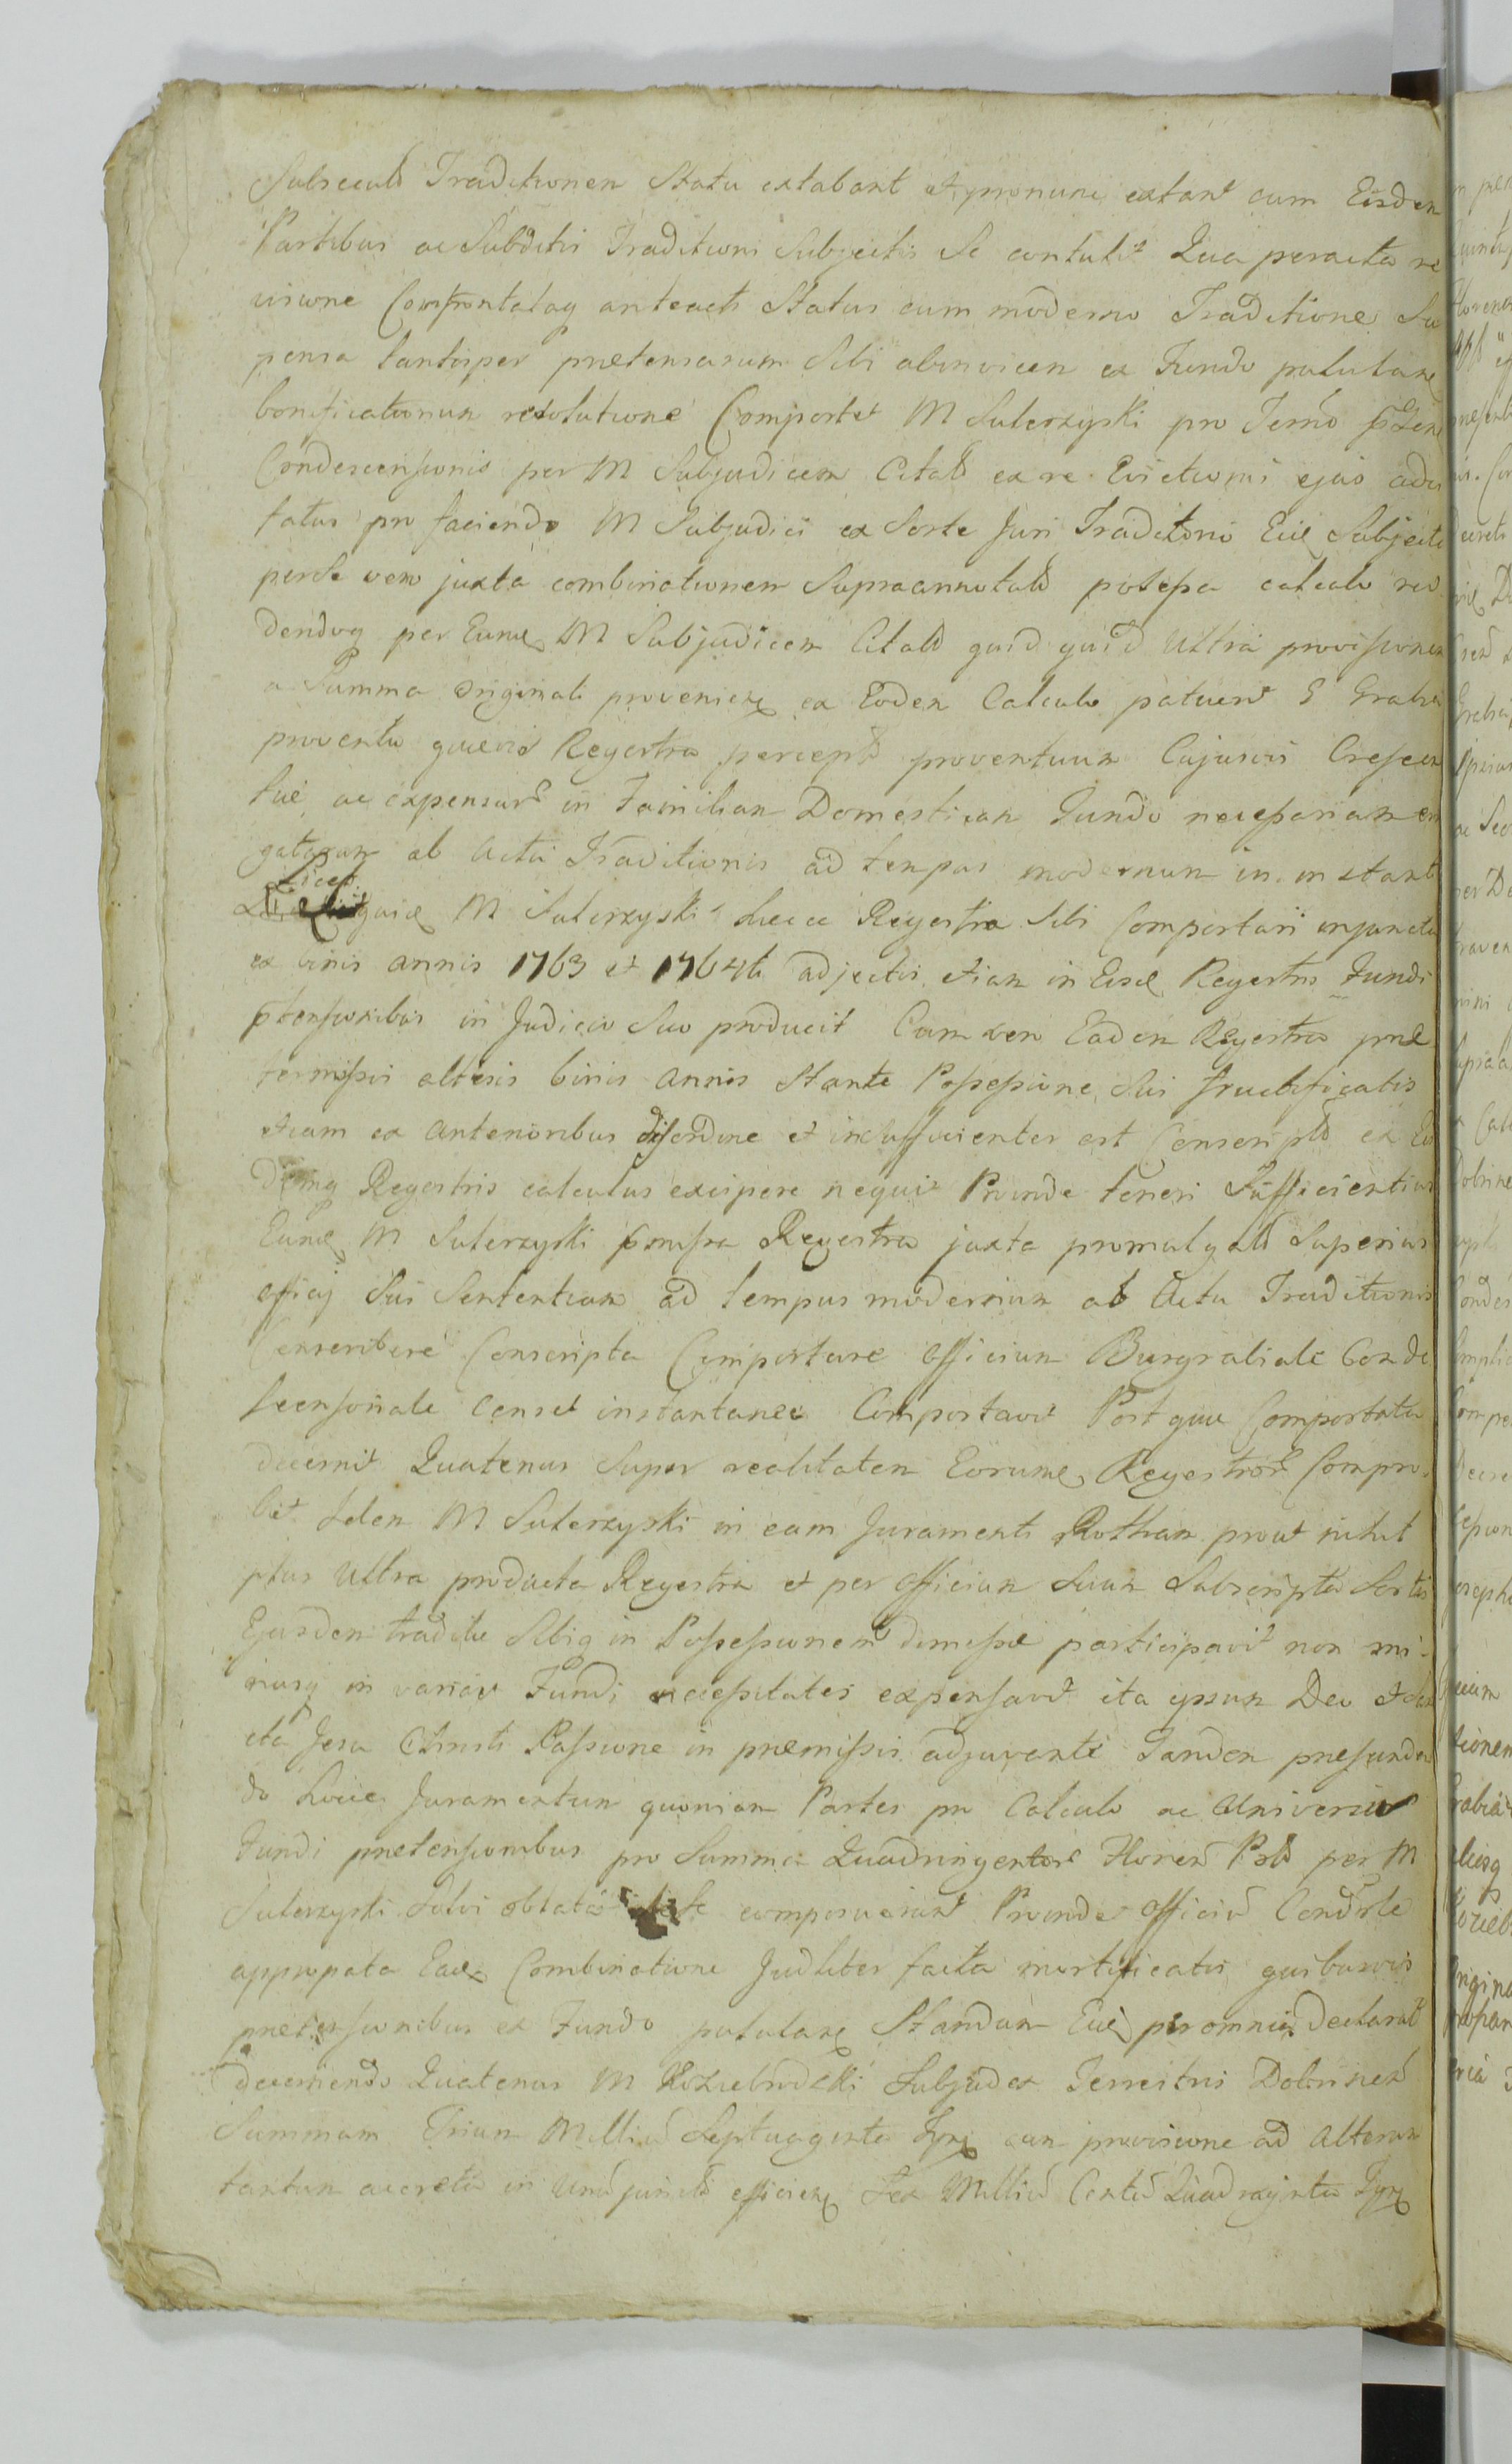 Subsecutd Traditionem Statu extabant et pronunc extant cum Eisdem
Partibus ac Subditis Traditioni Subjectis Se contulit Qua peracta re
visione Confrontataq anteacti Status cum moderno Traditione Su
pensa tantisper praetensarum Sibi abinvicem ex Fundo pululanẽ
bonificationum resolutione Comportet M Suterzyski pro Termo
Condescensionis per M Subjudicem Citatd ex re Evictioni ejus
tatus pro faciendo M Subjudici ex Sorte Juri Traditorio Subjecta
perse vero juxta combinationem Supraannotatd possessa calculo red
dendoq per Eunde M Subjudicem Citatd quid quid Ultra provisionem
a Summa Originali ex Eodem Calculo patuerit E
proventu quaevis Regestra percept proventuum Cujusvis Crescen
ac expensard in Familiam Domesticam Fundo necessariam ero
gatarum ab Actu Traditionis ad tempus modernum in instanti
Licet M Suterzyski haecce Regestra Sibi Comportari injuncta
ex binis annis 1763 et 1764to adjectis etiam in Eisd Regestris Fundi
ptensionibus in Judicio Suo producit Cum vero Eadem Regestra prae
termissis alteris binis annis Stante Possessione Sui fructificatis
etiam ex anterioribus disordine et insufficienter est Conscriptd ex Eis
demq Regestris calculus excipere nequit Proinde teneri Sufficientius
Eund M Suterzyski Regestra juxta promulgatd Superius
officij Sui Sententiam ad tempus modernum ab Actu Traditionis
Conscribere Conscripta Comportare officium Burgrabiale Conde
scensoriale Censet instantanee Comportavit Post quae Comportata
decernit Quatenus Super realitatem Eorund Regestror Compro
bet Idem M Suterzyski in eam Juramenti Rotham prout nihil
plus Ultra producta Regestra et per officium Suum Subscripta Sortis
Ejusdem traditae Sibiq in Possessionem dimissae participavit non mi-
nusq in varias Fundi necessitates expensavit ita ipsum Deo et San
cta Jesu Christi Passione in praemissis adjuvante Tandem
do hocce Juramentum quoniam Partes pro Calculo ac Universis
Fundi praetensionibus pro Summa Quadringentor Floren Pold per M
Suterzyski Solvi oblata Se composuerunt Proinde officiu Condsle
approbata Eade Combinatione Judliter facta mortificatis quibusvis
praetensionibus ex Fundo pululanẽ Standum per omnia declarat
decernendo Quatenus M Koziebrodzki Subjudex Terrestris Dobrinen
Summam Trium Milliu Septuaginta cum provisione ad Alterum
tantum accreta in Unu junctd efficienẽ Sex Milliu Centu Quadraginta